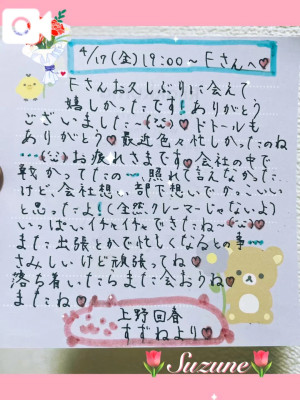 4/17(金)19:00〜Fさんへ
Fさんお久しぶりに会えて
嬉しかったです!ありがとう
ございました〜(¨)ドトールも
ありがとう 最近色々忙しかったのね
…(¨)お疲れさまです 会社の中で
戦かってたの…照れて言えなかった
けど、会社想い、部下想いでかっこいい
と思ったよ!(全然クレーマーじゃないよ)
いっぱいイチャイチャできたね〜(¨)
また出張とかで忙しくなるとの事…
さみしいけど頑張ってね
落ち着いたらまた会おうね
またね
上野回春
すずねより
Suzune